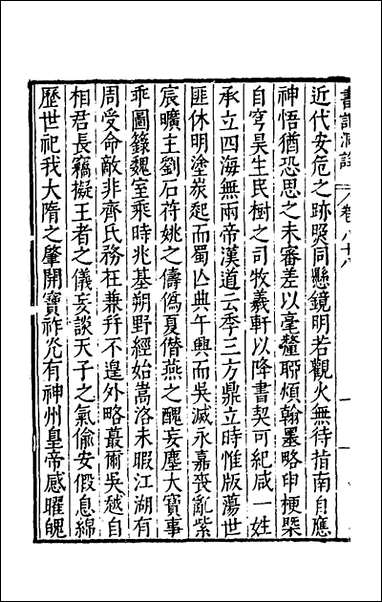 書記洞詮 卷八十八
近代安危之跡煚同懸鏡明若觀火無待指南自應
神悟猶恐思之未審差以毫釐聊煩翰墨略申梗槩
自穹昊生民樹之司牧羲軒以降書契可紀咸一姓
承立四海無兩帝漢道云季三方鼎立時惟版蕩世
匪休明塗炭起而蜀亾典午興而吳滅永嘉喪亂紫
宸曠主劉石苻姚之儔僞夏僭燕之醜妄塵大寶事
乖圖籙魏室乘時兆基朔野經始嵩洛未暇江湖有
周受命敵非齊氏務在兼并不遑外略蕞爾吳越自
相君長竊擬王者之儀妄談天子之氣偷安假息綿
歷世祀我大隋之肇開寶祚允有神州皇帝感曜魄